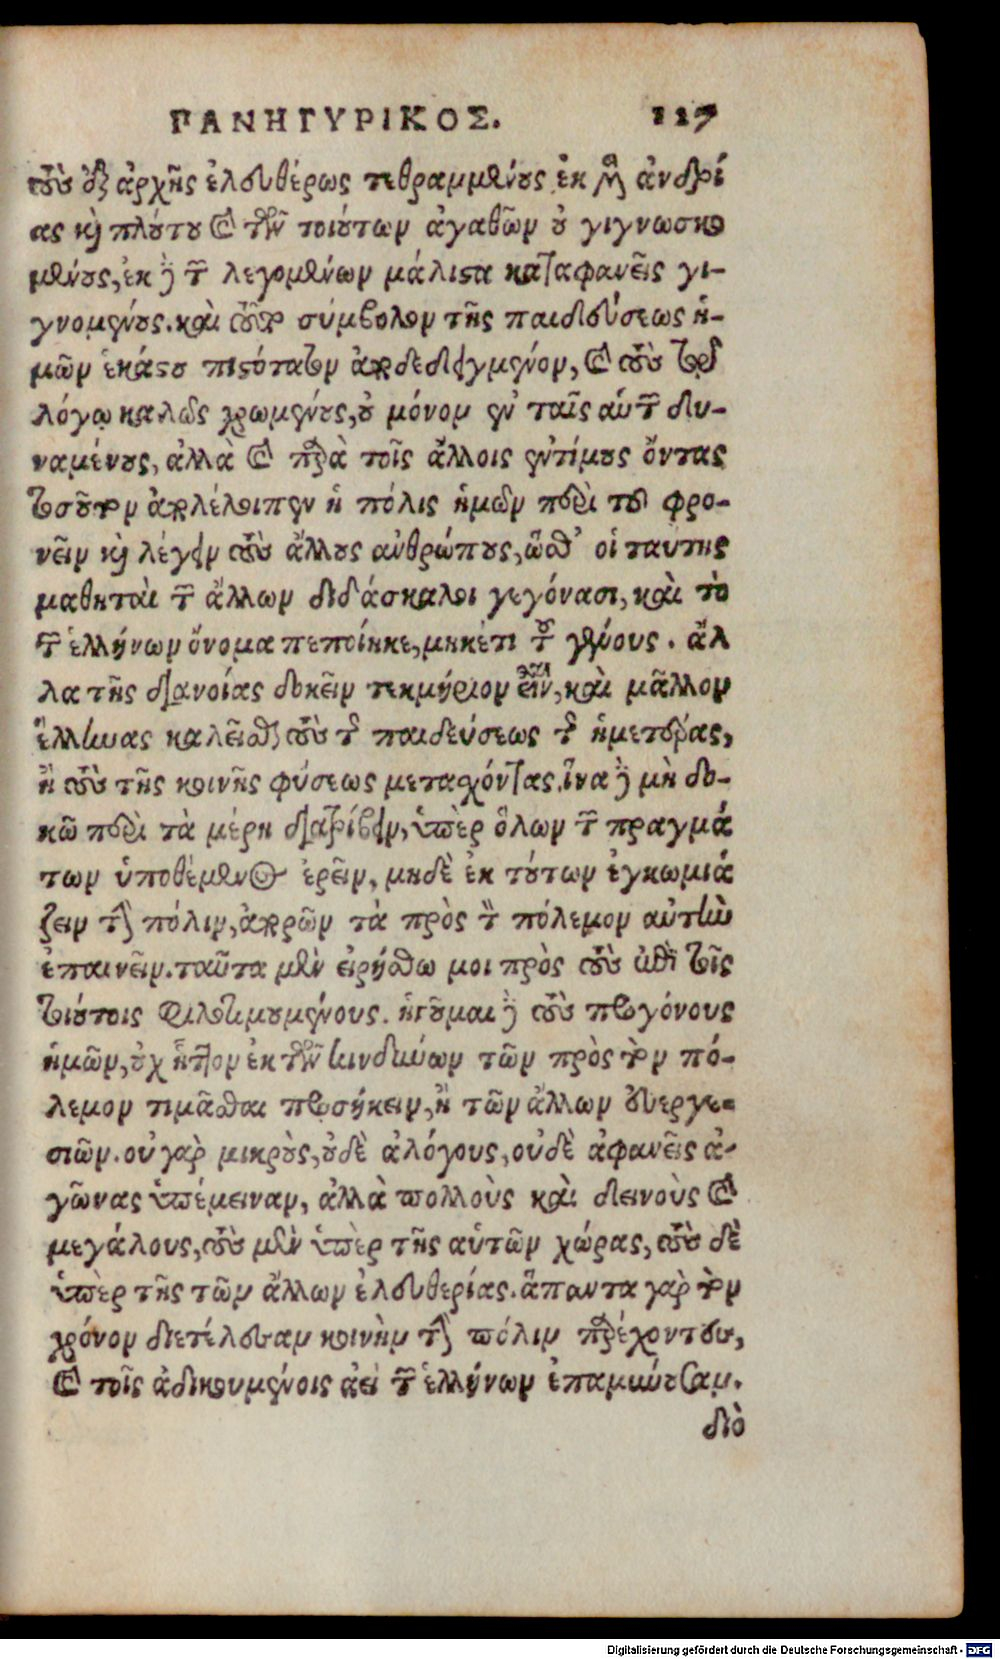 ΠΑΝΗΓΥΡΙΚΟΣ. 117
τοὺς ἐξ ἀρχῆς ἐλευθέρως τεθραμμένους ἐκ μὲν ἀνδρί
ας καὶ πλούτου καὶ τῶν τοιούτων ἀγαθῶν οὐ γιγνωσκο
μένους, ἐκ δὲ τῶν λεγομένων μάλιστα καταφανεῖς γι-
γνομένους. καὶ τοῦτο σύμβολον τῆς παιδεύσεως ἡ-
μῶν ἑκάστου πιστότατον ἀποδεδειγμένον, καὶ τοὺς τῷ
λόγῳ καλῶς χρωμένους, οὐ μόνον ἐν ταῖς αὑτῶν δυ-
ναμένους, ἀλλὰ καὶ παρὰ τοῖς ἄλλοις ἐντίμους ὄντας
τοσοῦτον ἀπολέλοιπεν ἡ πόλις ἡμῶν περὶ τοῦ φρο-
νεῖν καὶ λέγειν τοὺς ἄλλους ἀνθρώπους, ὥσθ' οἱ ταύτης
μαθηταὶ τῶν ἄλλων διδάσκαλοι γεγόνασι, καὶ τὸ
τῶν ἑλλήνων ὄνομα πεποίηκε, μηκέτι τοῦ γένους. ἀλ
λὰ τῆς διανοίας δοκεῖν τεκμήριον εἶναι, καὶ μᾶλλον
ἕλληνας καλεῖσθαι τοὺς τῆς παιδεύσεως τῆς ἡμετέρας,
ἢ τοὺς τῆς κοινῆς φύσεως μετασχόντας. ἵνα δὲ μὴ δο-
κῶ περὶ τὰ μέρη διατρίβειν, ὑπὲρ ὅλων τῶν πραγμά
των ὑποθέμενος ἐρεῖν, μηδὲ ἐκ τούτων ἐγκωμιά
ζειν τὴν πόλιν, ἀπορῶν τὰ πρὸς τὸν πόλεμον αὐτὴν
ἐπαινεῖν. ταῦτα μὲν εἰρήσθω μοι πρὸς τοὺς ἐπὶ τοῖς
τοιούτοις φιλοτιμουμένους. ἡγοῦμαι δὲ τοὺς προγόνους
ἡμῶν, οὐχ ἧττον ἐκ τῶν κινδύνων τῶν πρὸς τὸν πό-
λεμον τιμᾶσθαι προσήκειν, ἢ τῶν ἄλλων εὐεργε-
σιῶν. οὐ γὰρ μικροὺς, οὐδὲ ἀλόγους, οὐδὲ ἀφανεῖς ἀ-
γῶνας ὑπέμειναν, ἀλλὰ πολλοὺς καὶ δεινοὺς καὶ
μεγάλους, τοὺς μὲν ὑπὲρ τῆς αὑτῶν χώρας, τοὺς δὲ
ὑπὲρ τῆς τῶν ἄλλων ἐλευθερίας. ἅπαντα γὰρ τὸν
χρόνον διετέλεσαν κοινὴν τὴν πόλιν παρέχοντες,
καὶ τοῖς ἀδικουμένοις ἀεὶ τῶν ἑλλήνων ἐπαμύνουσαν.
διὸ
Digitalisierung gefördert durch die Deutsche Forschungsgemeinschaft - DFG